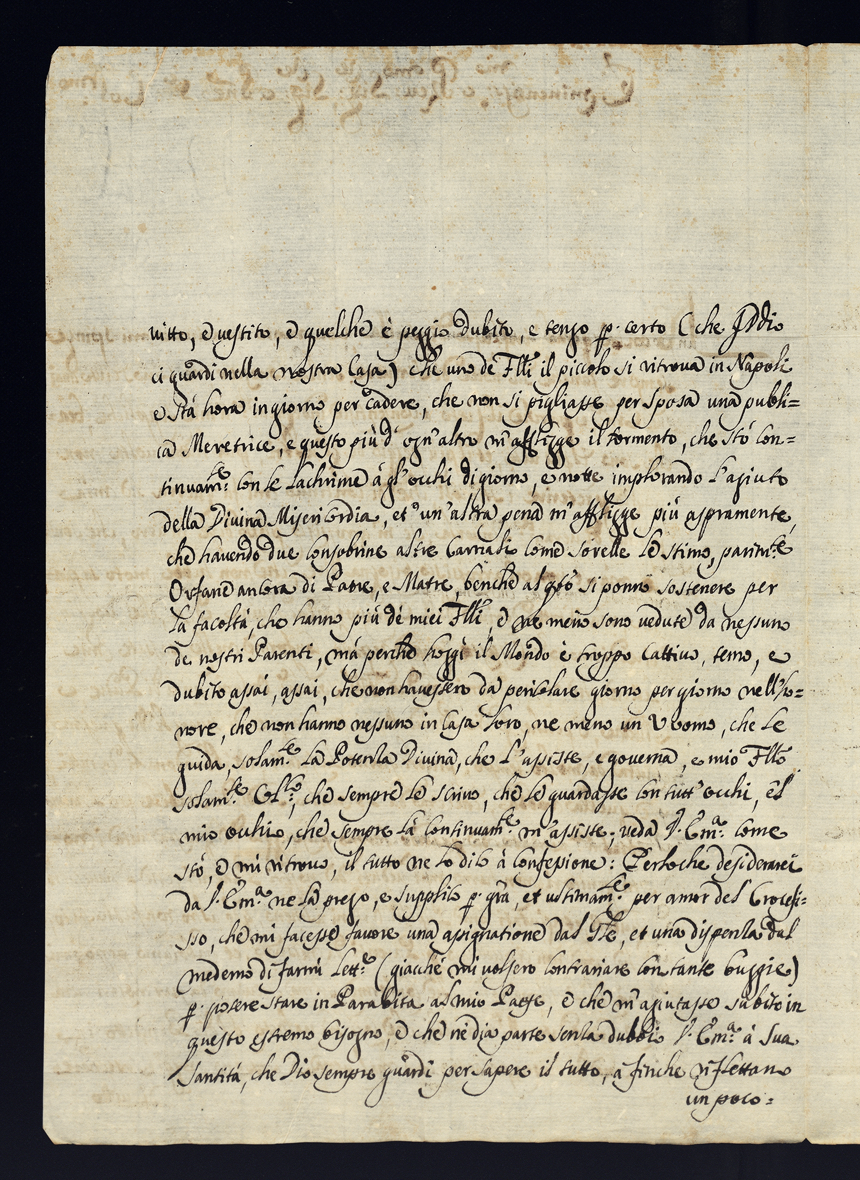 vitto, e vestito, e quelche è peggio dubito, e tengo p. certo (che Iddio
ci guardi nella nostra Casa) che uno de Flli il piccolo si ritrova in Napoli
e stà hora in giorno per cadere, che non si pigliasse per sposa una publi=
ca Meretrice, e questo più d'ogn'altro m'affligge il tormento, che stò con=
tinuam.te con le lachrime à gl'occhi di giorno, e notte implorando l'agiuto
della Divina Misericordia, et un'altra pena m'affligge più aspramente,
che havendo due consobrine altre Carnali come sorelle le stimo, parim.te
Orfane ancora di Patre, e Matre, benche al q̃to si ponno sostenere per
la facoltà, che hanno più de miei Flli, e ne meno sono vedute da nessuno
de nostri Parenti, mà perche hoggi il Mondo è troppo cattivo, temo, e
dubito assai, assai, che non havessero da pericolare giorno per giorno nell'ho=
nore, che non hanno nessuno in Casa loro, ne meno un Vuomo, che le
guida, solam.te la Potenza Divina, che l'assiste, e governa, e mio Fllo
solam.te che sempre le scrivo, che le guardasse con tutt'occhi, el
mio occhio, che sempre là continuam.te m'assiste; veda V. Em.a come
stò, e mi ritrovo, il tutto ne lo dico à confessione: Perloche desiderarei
da V. Em.a ne la prego, e supplico p. gra, et ultimam.te per amor del Crocefi=
sso, che mi facesse favore una assignatione dal et una dispenza dal
medemo di farmi Lett.e (giacche mi volsero contrariare con tante buggie)
p. potere stare in Parabita al mio Paese, e che m'agiutasse subito in
questo estremo bisogno, e che ne dia parte senza dubbio V. Em.a à Sua
Santità, che Dio sempre guardi per sapere il tutto, a finche riflettano
un poco=